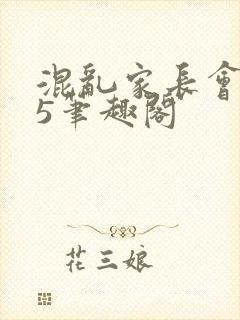 混亂家長會
5筆趣閣
花三娘